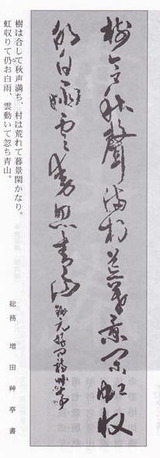 樹合秋聲満村荒暮景閑虹收
仍白雨雲動忽青山 元好問詩 艸亭
樹は合して秋声満ち、村は荒れて暮景閑かなり。
虹収りて仍お白雨、雲動いて忽ち青山。
総務 増田艸亭書